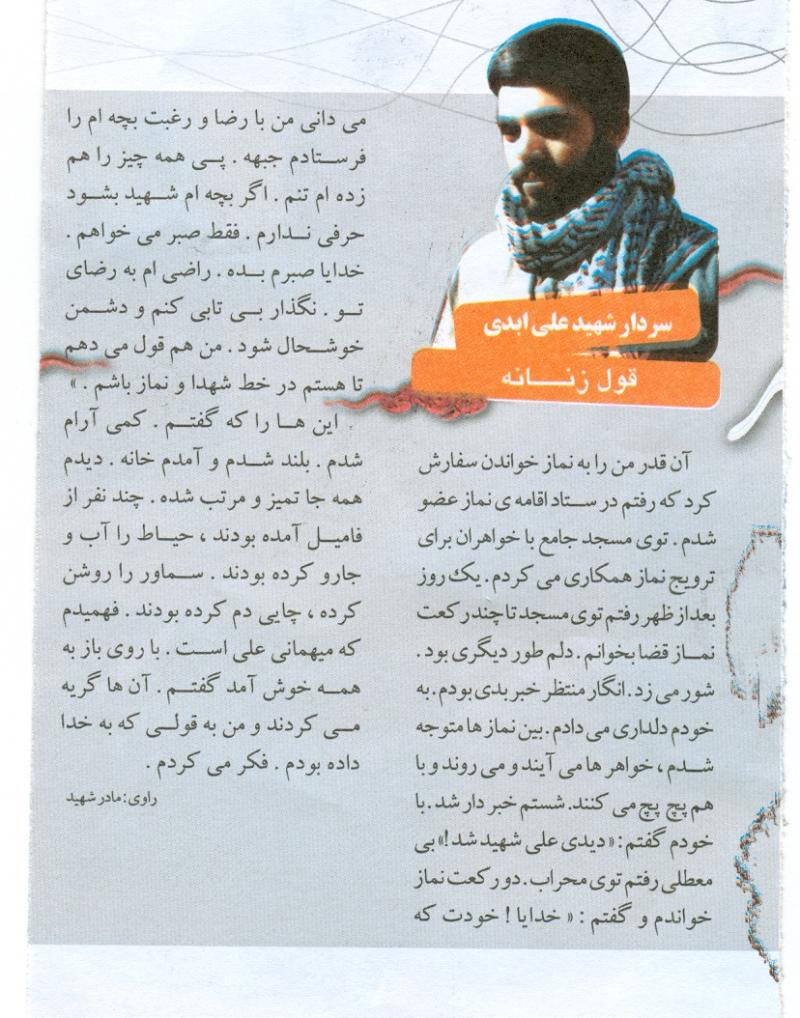 سردار شهید علی ابدی
قول زنـــانه
آن قدر من را به نماز خواندن سفارش
کرد که رفتم در ستاد اقامه ی نماز عضو
شدم . توی مسجد جامع با خواهران برای
ترویج نماز همکاری می کردم . یک روز
بعداز ظهر رفتم توی مسجد تا چند رکعت
نمـاز قضا بخوانم . دلم طور دیگری بود .
شور می زد . انگار منتظر خبر بدی بودم . به
خودم دلداری می دادم . بین نماز ها متوجه
شـدم ، خواهر ها می آیند و می روند و با
هم پچ پچ می کنند. شستم خبر دار شد . با
خودم گفتم : « دیدی علی شهید شد !» بی
معطلی رفتم توی محراب . دو رکعت نماز
خواندم و گفتم : « خدایا ! خودت که
می دانی من با رضا و رغبت بچه ام را
فرستادم جبهه . پـی همه چیز را هم
زده ام تنم . اگر بچه ام شـهید بشود
حرفی نـدارم . فقط صبر می خواهم .
خدایا صبرم بـده . راضی ام به رضای
تـو . نگذار بـی تابی کنم و دشـمن
خوشـحال شود . من هم قول می دهم
تا هستم در خط شهدا و نماز باشم . »
این هـا را که گفتـم . کمی آرام
شدم . بلند شـدم و آمدم خانه . دیدم
همه جا تمیز و مرتب شده . چند نفر از
فامیـل آمده بودند ، حیـاط را آب و
جارو کرده بودند . سـماور را روشن
کرده ، چایی دم کرده بودند . فهمیدم
که میهمانی علی است . با روی باز به
همـه خوش آمد گفتـم . آن ها گریه
مـی کردند و من به قولـی که به خدا
داده بودم . فکر می کردم .
راوی : مادر شهید